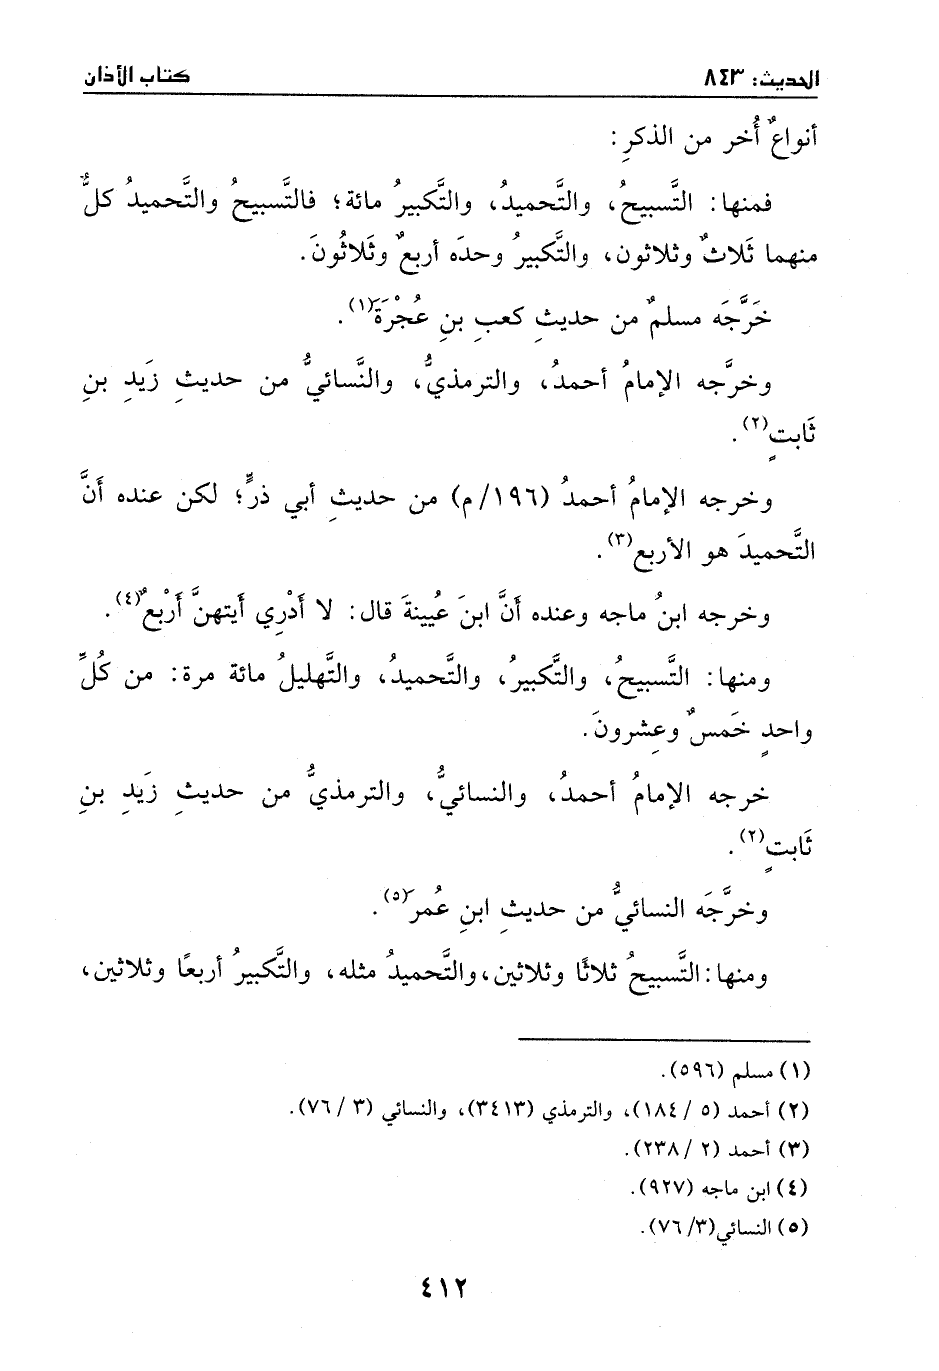 الحديث: ٨٤٣ كتاب الأذان
أنواعٌ أُخر من الذكرِ:
فمنها: التَّسبيحُ، والتَّحميدُ، والتَّكبيرُ مائة؛ فالتَّسبيحُ والتَّحميدُ كلٌّ
منهما ثَلاثٌ وثلاثون، والتَّكبيرُ وحدَه أربعٌ وثَلاثُونَ.
خَرَّجَه مسلمٌ من حديثِ كعبِ بنِ عُجْرَةَ(١).
وخرَّجه الإمامُ أحمدُ، والترمذيُّ، والنَّسائيُّ من حديثِ زَيدِ بنِ
ثَابتٍ(٢).
وخرجه الإمامُ أحمدُ (١٩٦/م) من حديثِ أبي ذرٍّ؛ لكن عنده أَنَّ
التَّحميدَ هو الأربع(٣).
وخرجه ابنُ ماجه وعنده أَنَّ ابنَ عُيينةَ قال: لا أَدْرِي أَيتهنَّ أَرْبعٌ(٤).
ومنها: التَّسبيحُ، والتَّكبيرُ، والتَّحميدُ، والتَّهليلُ مائة مرة: من كُلِّ
واحدٍ خَمسٌ وعِشرونَ.
خرجه الإمامُ أحمدُ، والنسائيُّ، والترمذيُّ من حديثِ زَيدِ بنِ
ثَابتٍ(٢).
وخرَّجَه النسائيُّ من حديثِ ابنِ عُمر(٥).
ومنها: التَّسبيحُ ثلاثًا وثلاثين، والتَّحميدُ مثله، والتَّكبيرُ أربعًا وثلاثين،
(١) مسلم (٥٩٦).
(٢) أحمد (٥ / ١٨٤)، والترمذي (٣٤١٣)، والنسائي (٣ / ٧٦).
(٣) أحمد (٢ / ٢٣٨).
(٤) ابن ماجه (٩٢٧).
(٥) النسائي(٣/ ٧٦).
٤١٢